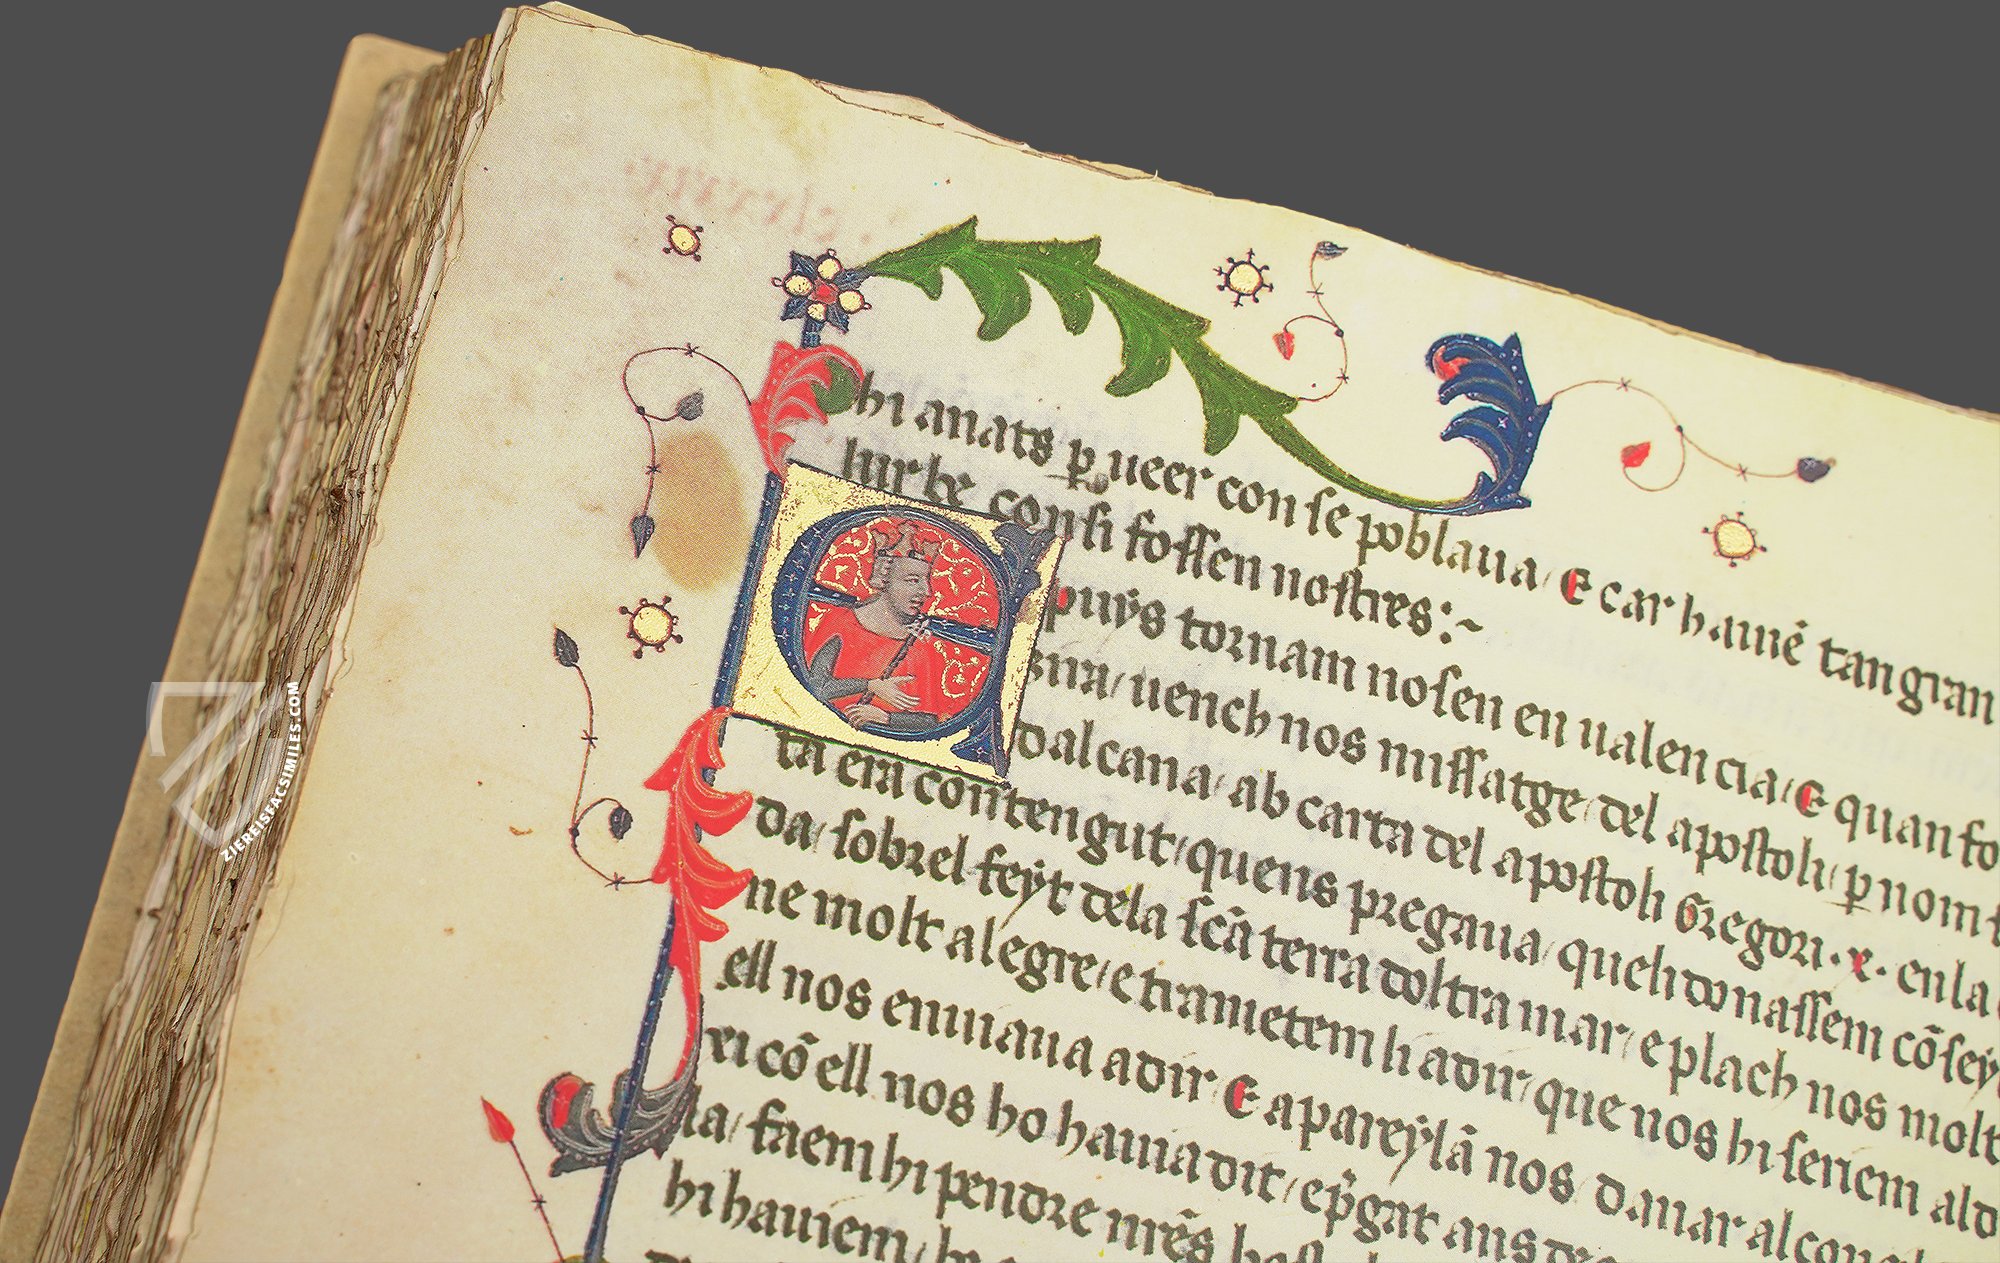 hi anats p ueer con se poblaua / E car hauiē tan gran
lur be consi fossen nostres:~
E puys tornam nosen en ualencia / E quan fo
uench nos missatge / del apostoli / p nom
dalcana / ab carta del apostoli Gregori .x. en la
ta era contengut / quens pregaua / queli donassem cōsey
da / sobrel feyt dela scā terra doltra mar / e plach nos molt
ne molt alegre / e trametem li adir / que nos hi seriem al d
ell nos enuiaua adir E apareylā nos danar al
xi cō ell nos ho hauia dit / e pgat ans de
la / faem hi pendre nrēs
hi hauiem / be
ZIEREISFACSIMILES.COM